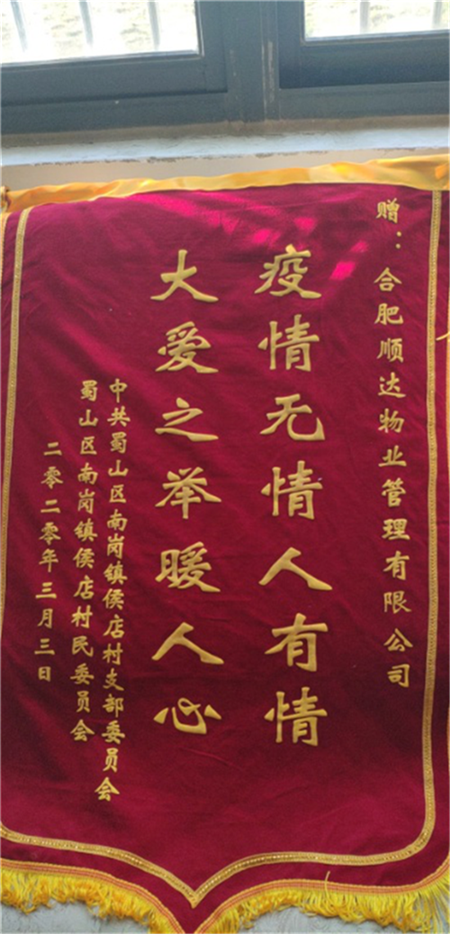 赠：合肥顺达物业管理有限公司
疫情无情人有情
大爱之举暖人心
中共蜀山区南岗镇侯店村支部委员会
蜀山区南岗镇侯店村民委员会
二零二零年三月三日